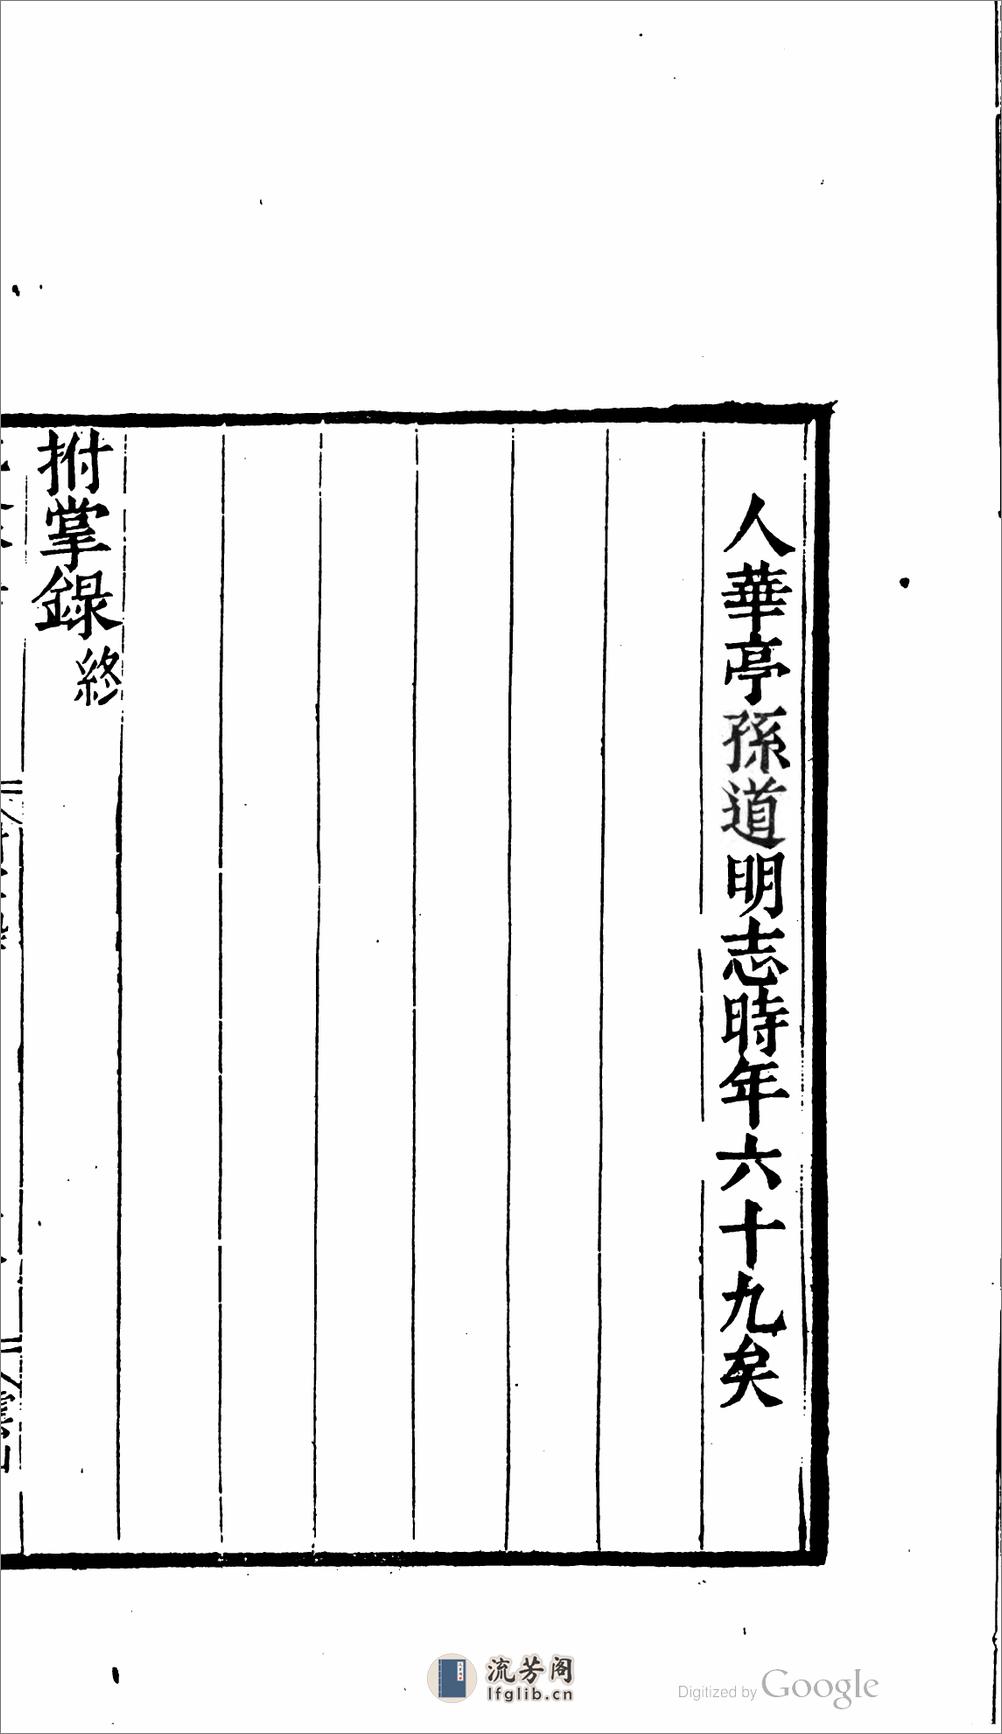 人華亭孫道明志時年六十九矣
拊掌錄終
流芳阁
lfglib.cn
Digitized by Google